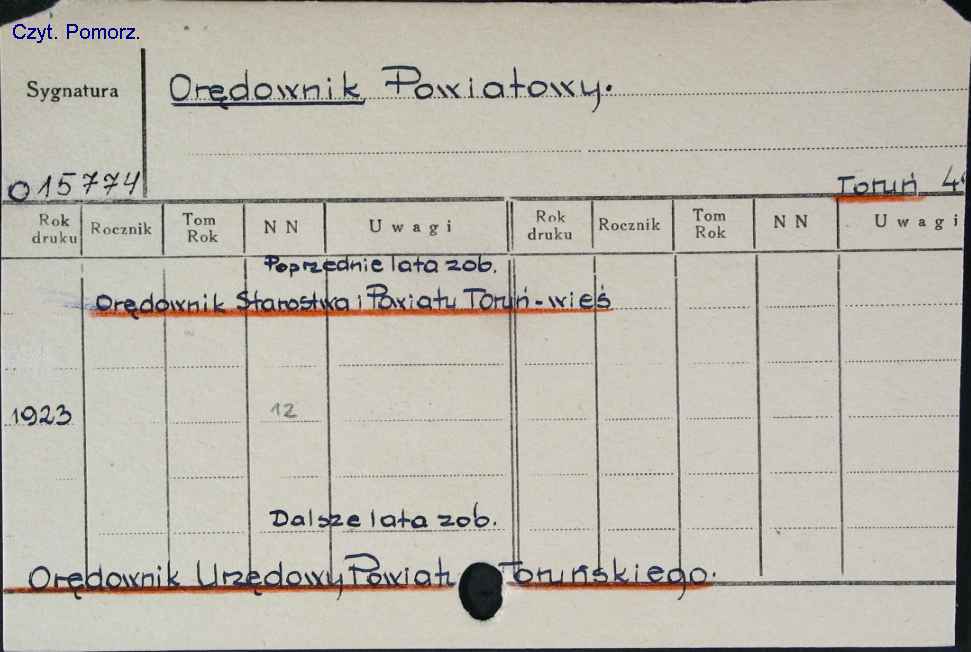 Czyt. Pomorz.
Sygnatura
Orędownik Powiatowy.
O 15774
Toruń 4°
Rok druku Rocznik Tom Rok NN Uwagi Rok druku Rocznik Tom Rok NN Uwagi
Poprzednie lata zob.
Orędownik Starostwa i Powiatu Toruń-wieś
1923 12
Dalsze lata zob.
Orędownik Urzędowy Powiatu Toruńskiego.